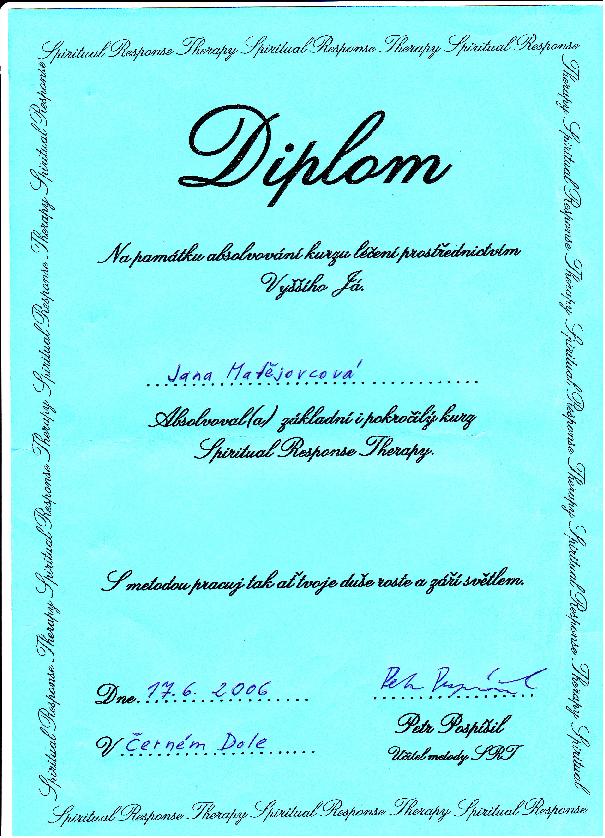 Spiritual Response Therapy Spiritual Response Therapy Spiritual Response
Therapy Spiritual Response Therapy Spiritual Response Therapy Spiritual Response Therapy Spiritual
Diplom
Na památku absolvování kurzu léčení prostřednictvím
Vyššího Já.
Jana Matějovcová
Absolvoval(a) základní i pokročilý kurz
Spiritual Response Therapy.
S metodou pracuj tak ať tvoje duše roste a září světlem.
Dne 17.6. 2006
Petr Pospíšil
V Černém Dole
Petr Pospíšil
Učitel metody SRT
Spiritual Response Therapy Spiritual Response Therapy Spiritual Response Therapy Spiritual Response
Spiritual Response Therapy Spiritual Response Therapy Spiritual Response